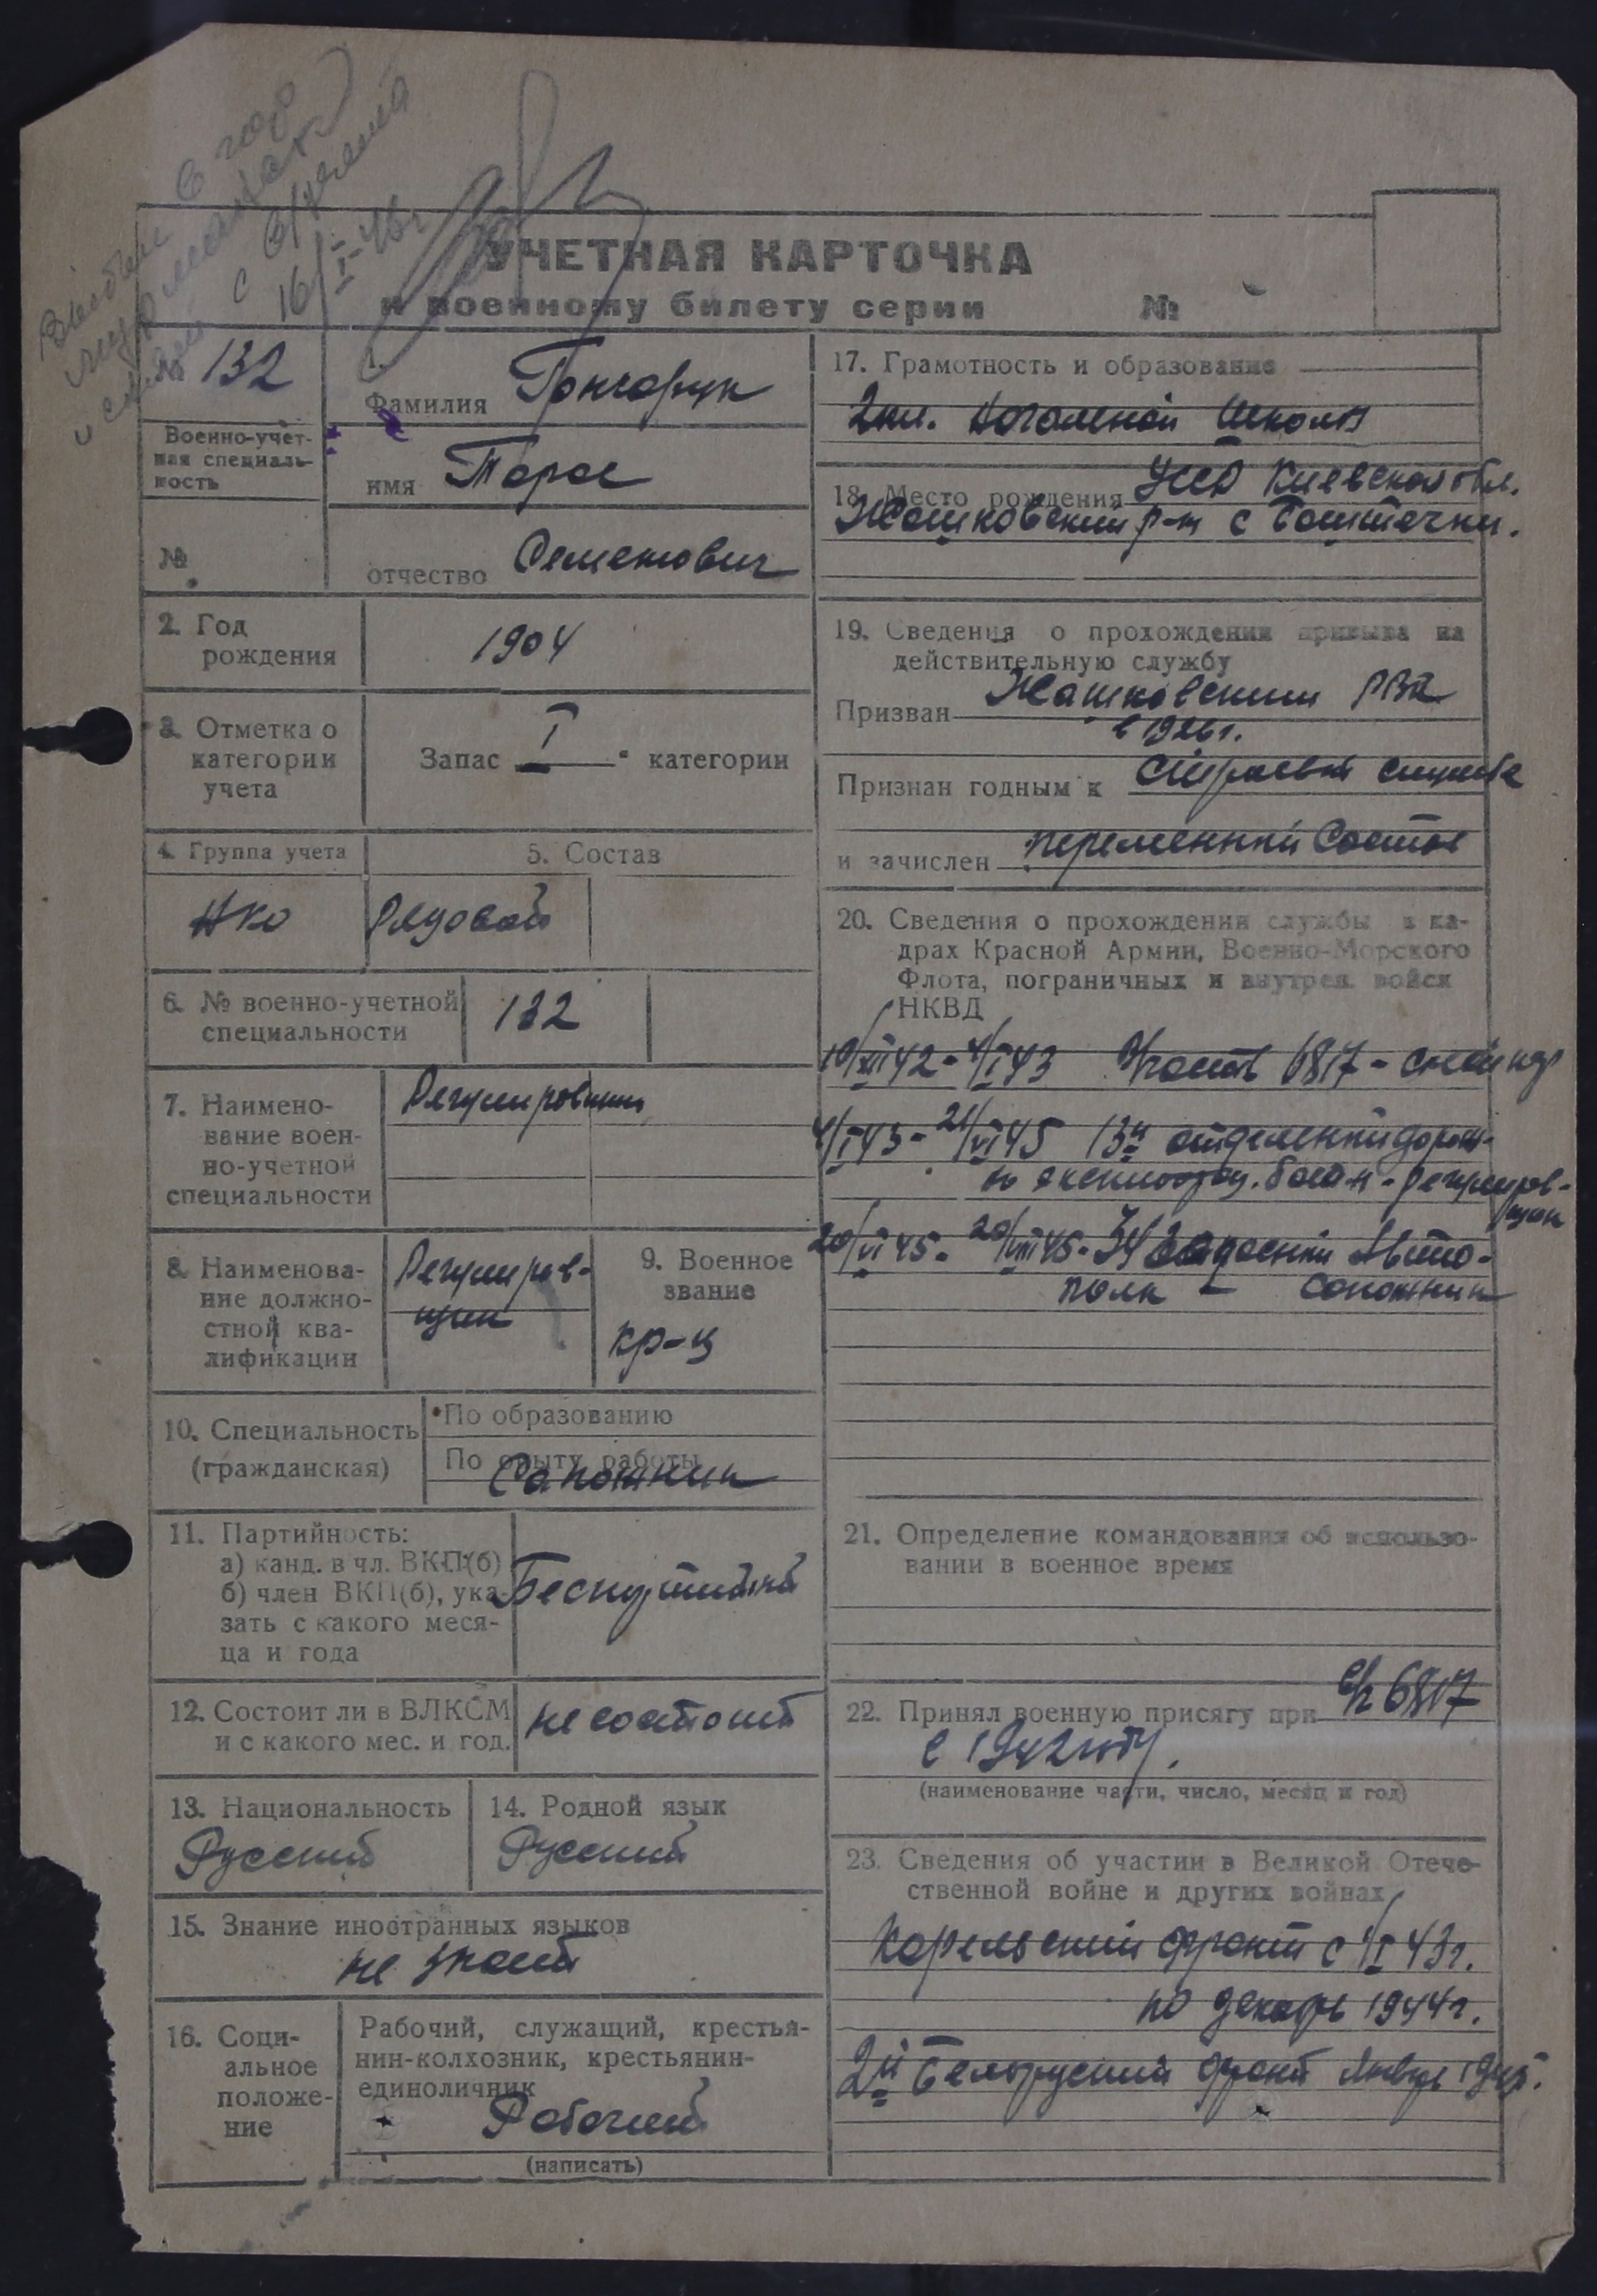 Выбыл в гор
Мурманск
и снят с
16/I-46г
УЧЕТНАЯ КАРТОЧКА
к военному билету серии №
№ 132
Военно-учет-
ная специаль-
ность
№
1.
Фамилия Гончарук
имя Тарас
отчество Семенович
2. Год
рождения
1904
3. Отметка о
категории
учета
Запас I категории
4. Группа учета
5. Состав
НКО
Рядовой
6. № военно-учетной
специальности
132
7. Наимено-
вание воен-
но-учетной
специальности
Регулировщик
8. Наименова-
ние должно-
стной ква-
лификации
Регулиров-
щик
9. Военное
звание
кр-ц
10. Специальность
(гражданская)
По образованию
По опыту работы
Сапожник
11. Партийность:
а) канд. в чл. ВКП(б)
б) член ВКП(б), ука-
зать с какого меся-
ца и года
Беспартийный
12. Состоит ли в ВЛКСМ
и с какого мес. и год.
не состоит
13. Национальность
Русский
14. Родной язык
Русский
15. Знание иностранных языков
не знает
16. Соци-
альное
положе-
ние
Рабочий, служащий, крестья-
нин-колхозник, крестьянин-
единоличник
Рабочий
(написать)
17. Грамотность и образование
2 кл. начальной школы
18. Место рождения УССР Киевская обл.
Жашковский р-н с Баштечки.
19. Сведения о прохождении призыва на
действительную службу
Призван Жашковским РВК
в 1926г.
Признан годным к строевой службе
и зачислен переменный состав
20. Сведения о прохождении службы в ка-
драх Красной Армии, Военно-Морского
Флота, пограничных и внутрен. войск
НКВД
10/XII 42 - 4/I 43 В/часть 6817 -
4/I 43 - 21/VI 45 13й отделенный дорож-
но эксплоатац. батал-н - регулиров-
щик
20/VI 45 - 20/VIII 45 - 34 Запасной Авто-
полк - сапожник
21. Определение командования об использо-
вании в военное время
22. Принял военную присягу при в/ч 6817
в 1942 году.
(наименование части, число, месяц и год)
23. Сведения об участии в Великой Отече-
ственной войне и других войнах
Карельский фронт с 4/I 43г.
по декабрь 1944г.
2й Белорусский фронт Январь 1945.